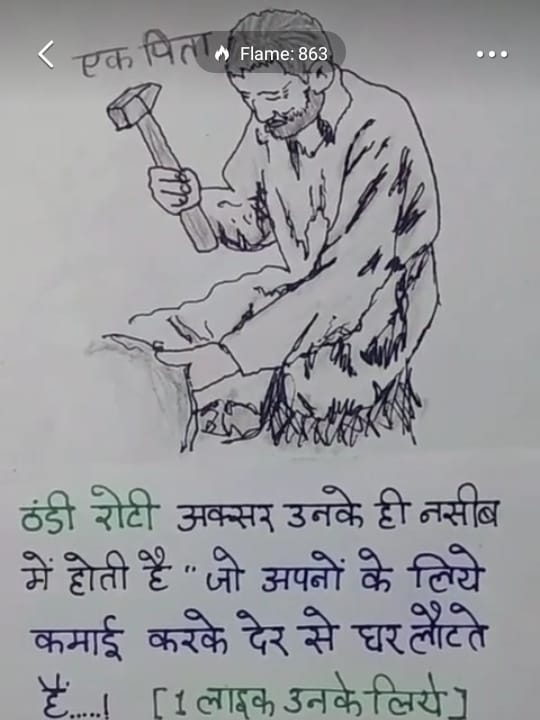 एक पिता
Flame: 863
ठंडी रोटी अक्सर उनके ही नसीब
में होती है " जो अपनों के लिये
कमाई करके देर से घर लौटते
हैं.....! [ 1 लाइक उनके लिये ]